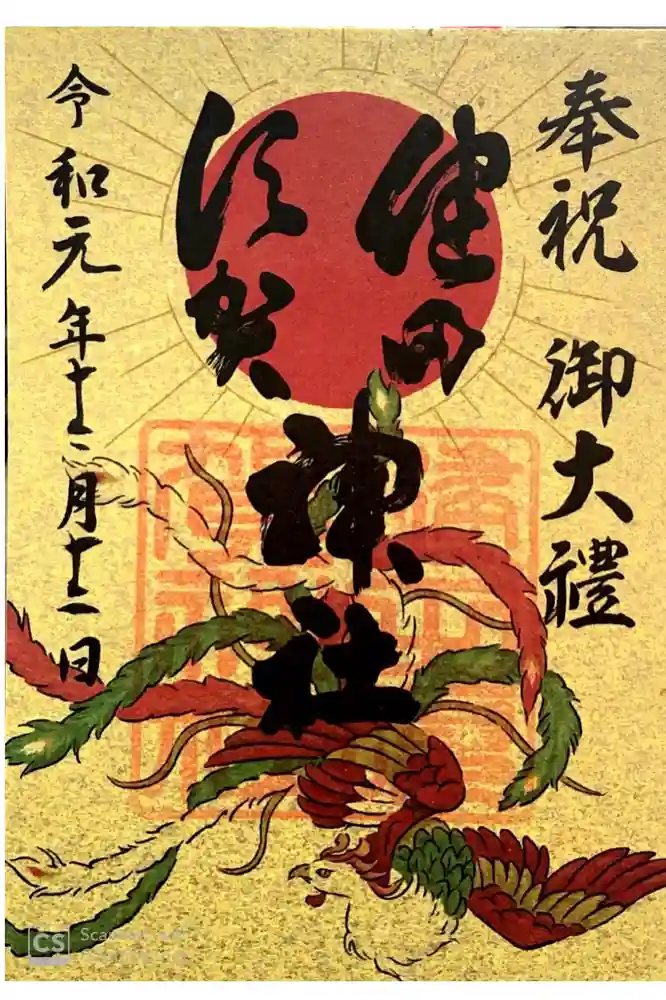 奉祝 御大禮
健田
須賀
神社
令和元年十二月十二日
CS
Scanned with